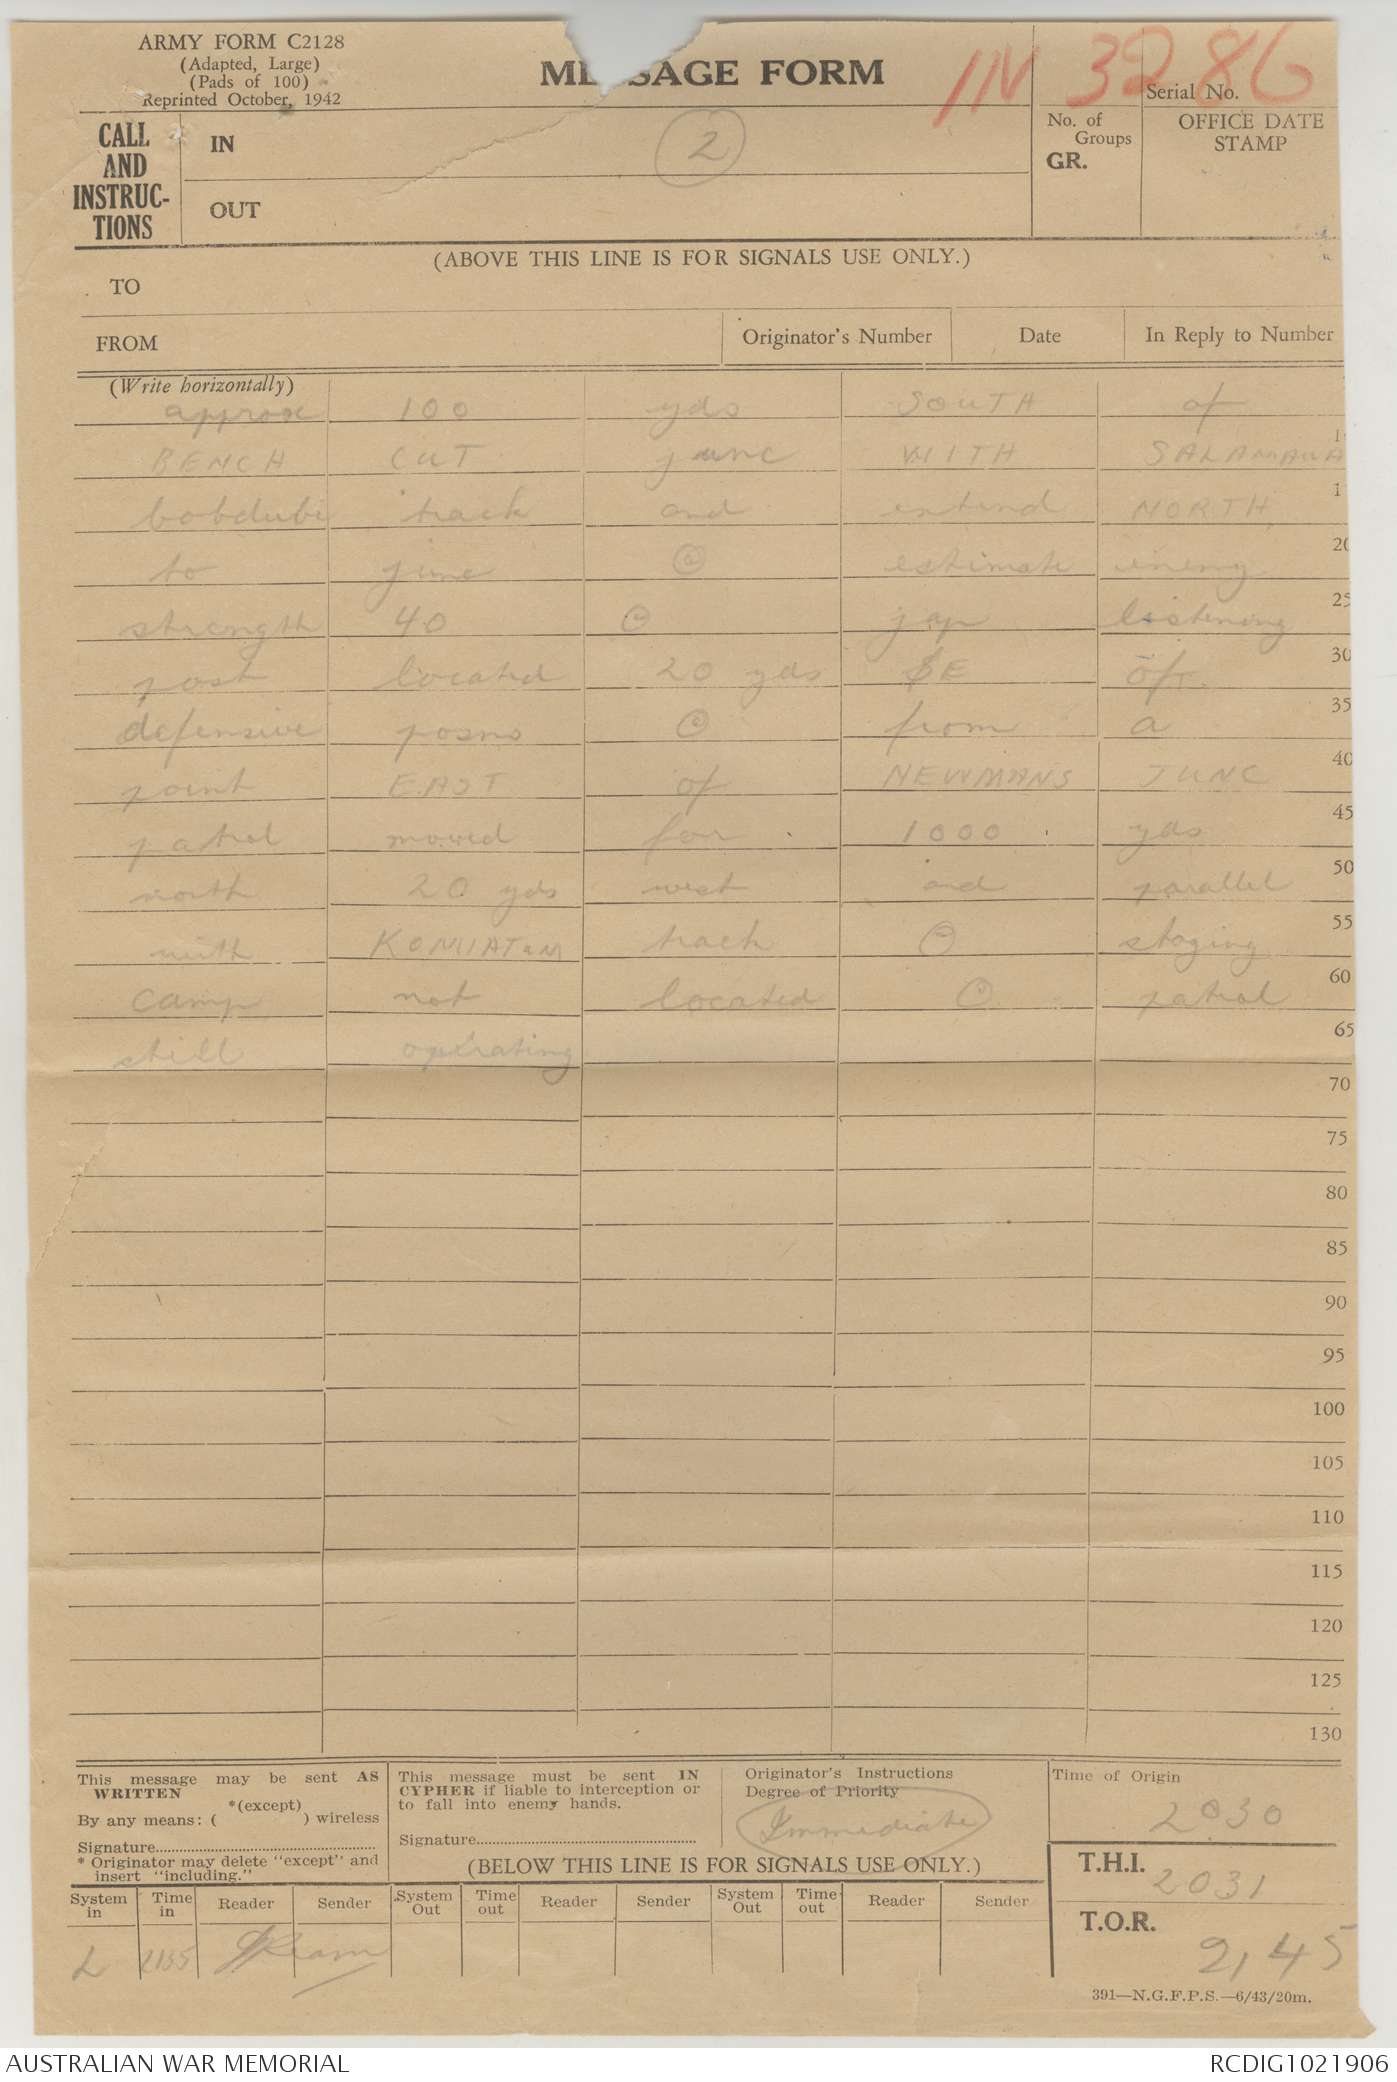 ARMY FORM C2128
(Adapted, Large)
(Pads of 100)
Reprinted October, 1942
MESSAGE FORM
IN 3286
Serial No.
CALL
AND
INSTRUC-
TIONS
IN
OUT
2
No. of
Groups
GR.
OFFICE DATE
STAMP
(ABOVE THIS LINE IS FOR SIGNALS USE ONLY.)
TO
FROM
Originator's Number
Date
In Reply to Number
(Write horizontally)
approx 100 yds SOUTH of
BENCH CUT junc WITH SALAMAUA
bobdubi track and extend NORTH
to junc ⊙ estimate enemy
strength 40 ⊙ jap listening
post located 20 yds SE of
defensive posns ⊙ from a
point EAST of NEWMANS JUNC
patrol moved for 1000 yds
north 20 yds west and parallel
with KOMIATUM track ⊙ staging
camp not located ⊙ patrol
still operating
1
1
20
25
30
35
40
45
50
55
60
65
70
75
80
85
90
95
100
105
110
115
120
125
130
This message may be sent AS
WRITTEN
*(except)
By any means: ( ) wireless
Signature
* Originator may delete "except" and
insert "including."
This message must be sent IN
CYPHER if liable to interception or
to fall into enemy hands.
Signature
Originator's Instructions
Degree of Priority
Immediate
Time of Origin
2030
(BELOW THIS LINE IS FOR SIGNALS USE ONLY.)
T.H.I.
2031
T.O.R.
2145
System in
Time in
Reader
Sender
System Out
Time out
Reader
Sender
System Out
Time out
Reader
Sender
L 2135
391—N.G.F.P.S.—6/43/20m.
AUSTRALIAN WAR MEMORIAL
RCDIG1021906